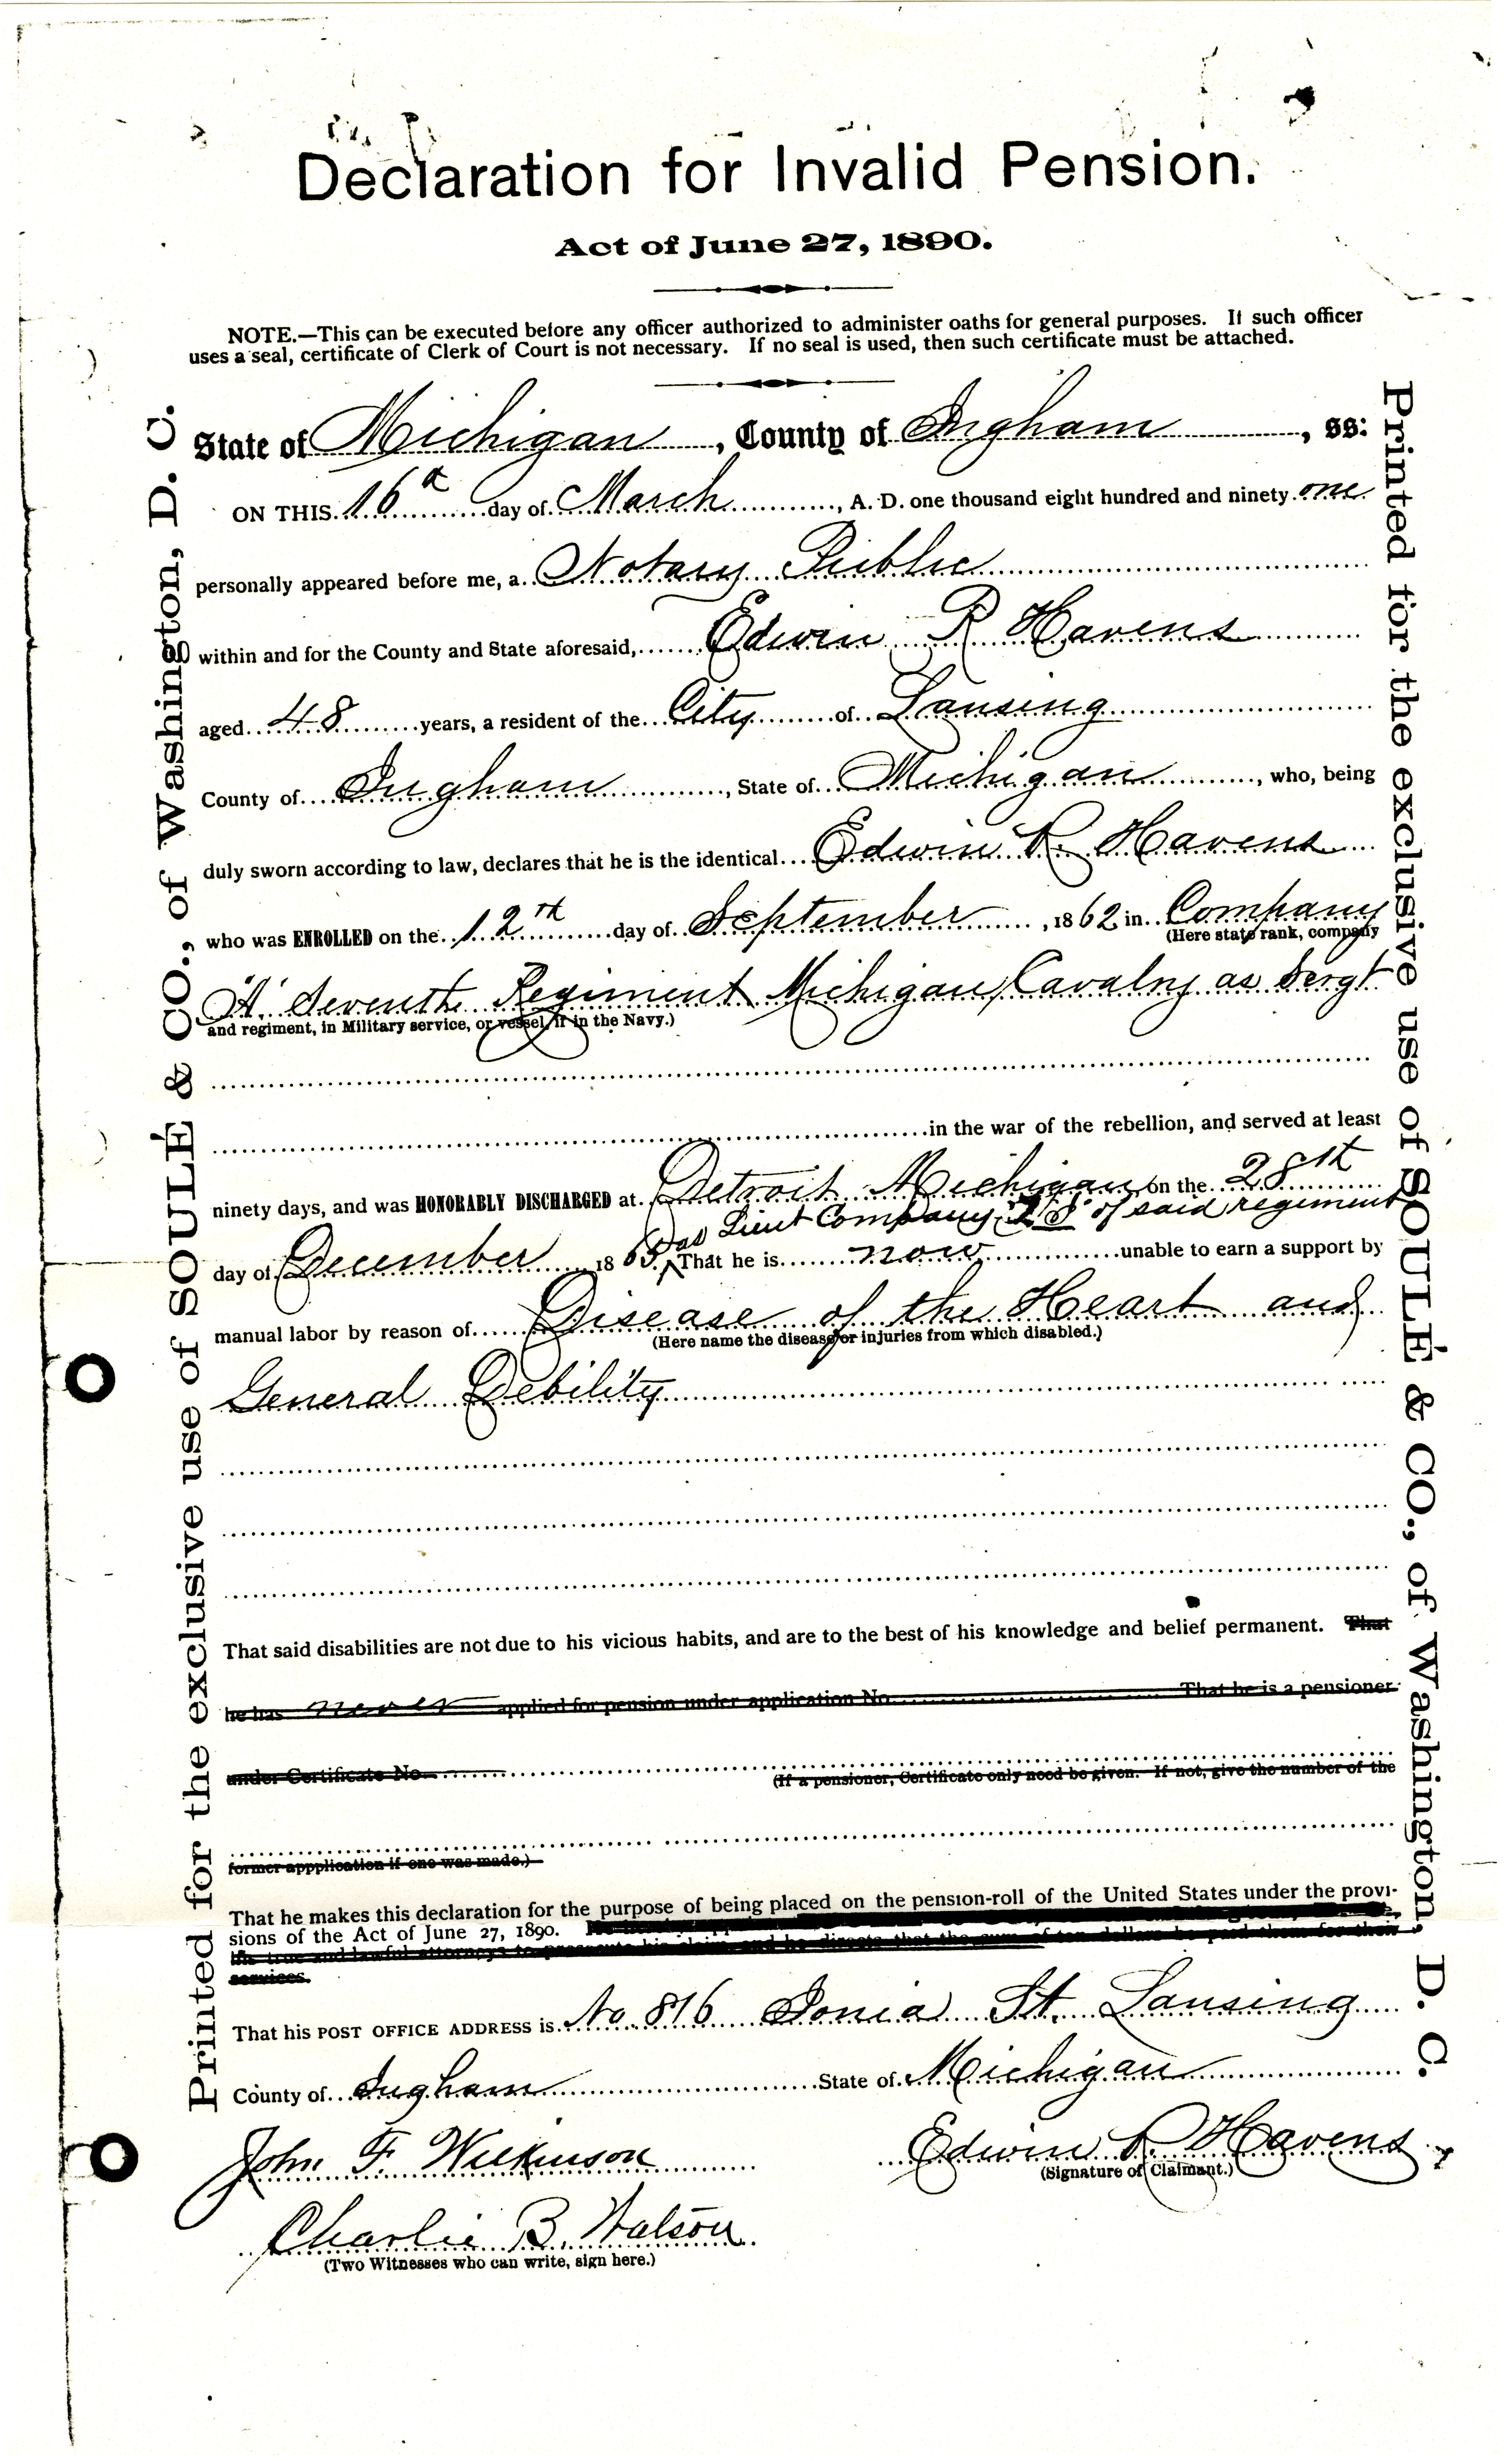 Declaration for Invalid Pension.
Act of June 27, 1890.
NOTE.—This can be executed before any officer authorized to administer oaths for general purposes. If such officer
uses a seal, certificate of Clerk of Court is not necessary. If no seal is used, then such certificate must be attached.
State of Michigan, County of Ingham, ss:
ON THIS 16th day of March, A. D. one thousand eight hundred and ninety one
personally appeared before me, a Notary Public
within and for the County and State aforesaid, Edwin R Havens
aged 48 years, a resident of the City of Lansing
County of Ingham, State of Michigan, who, being
duly sworn according to law, declares that he is the identical Edwin R. Havens
who was ENROLLED on the 12th day of September, 1862 in Company
(Here state rank, company
"A" Seventh Regiment Michigan Cavalry as Sergt
and regiment, in Military service, or vessel, if in the Navy.)
in the war of the rebellion, and served at least
ninety days, and was HONORABLY DISCHARGED at Detroit Michigan on the 28th
as Lieut Company of said regiment
day of December 1865. That he is now unable to earn a support by
manual labor by reason of Disease of the Heart and
(Here name the disease or injuries from which disabled.)
General Debility
That said disabilities are not due to his vicious habits, and are to the best of his knowledge and belief permanent. That
he has never applied for pension under application No. That he is a pensioner
under Certificate No.
(If a pensioner, Certificate only need be given. If not, give the number of the
former appplication if one was made.)
That he makes this declaration for the purpose of being placed on the pension-roll of the United States under the provi-
sions of the Act of June 27, 1890.
his true and lawful attorneys to prosecute his claim, and he directs that the sum of ten dollars be paid them for their
services.
That his POST OFFICE ADDRESS is No. 816 Ionia St. Lansing
County of Ingham State of Michigan
John F. Wilkinson
Edwin R. Havens
(Signature of Claimant.)
Charlie B. Watson
(Two Witnesses who can write, sign here.)
Printed for the exclusive use of SOULÉ & CO., of Washington, D. C.
Printed for the exclusive use of SOULÉ & CO., of Washington, D. C.